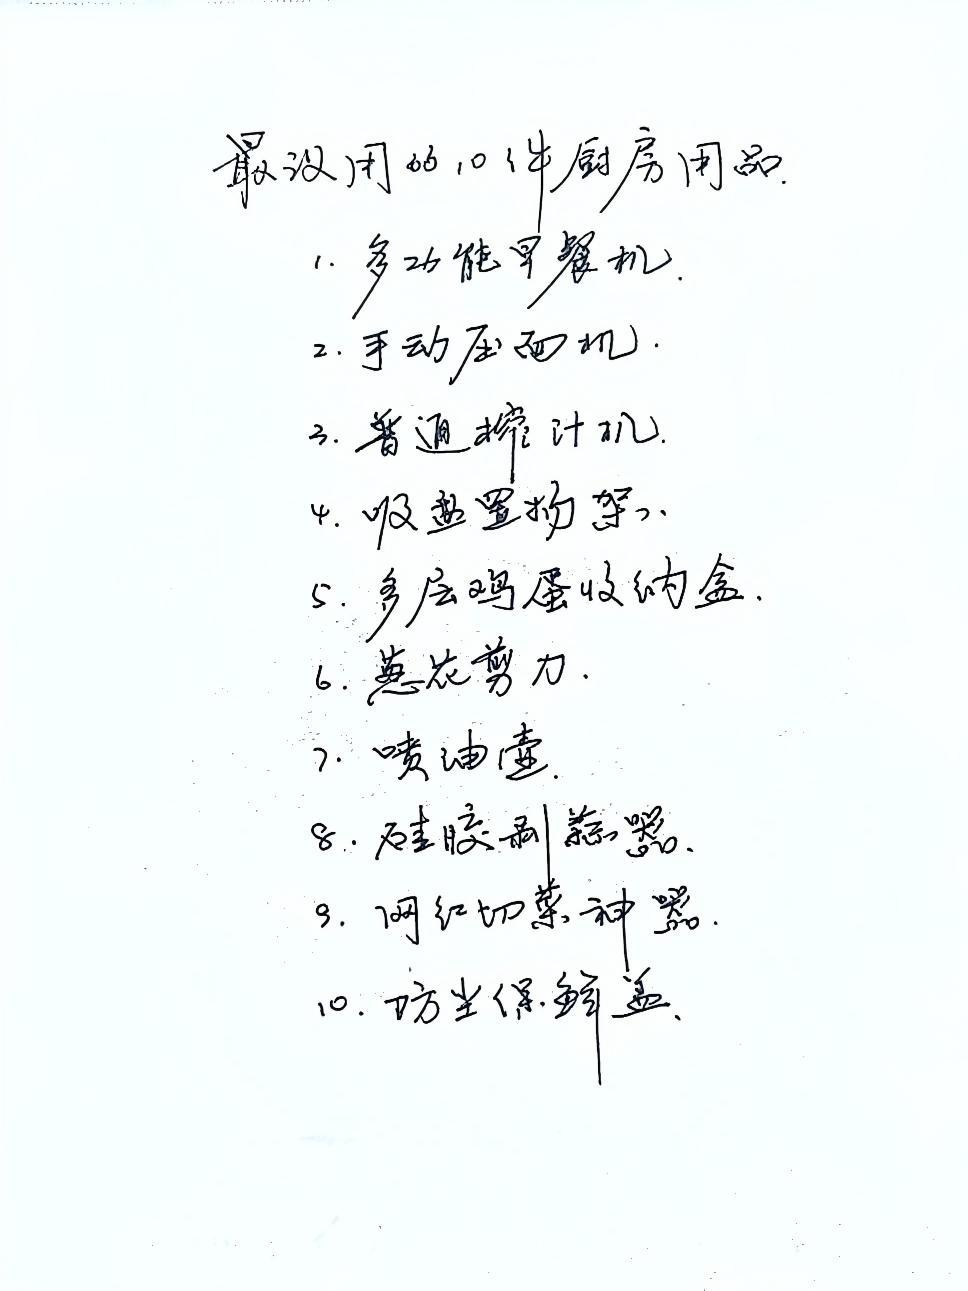 最没用的10件厨房用品.
1. 多功能早餐机.
2. 手动压面机.
3. 普通榨汁机.
4. 吸盘置物架.
5. 多层鸡蛋收纳盒.
6. 葱花剪刀.
7. 喷油壶.
8. 硅胶剥蒜器.
9. 网红切菜神器.
10. 防尘保鲜盖.